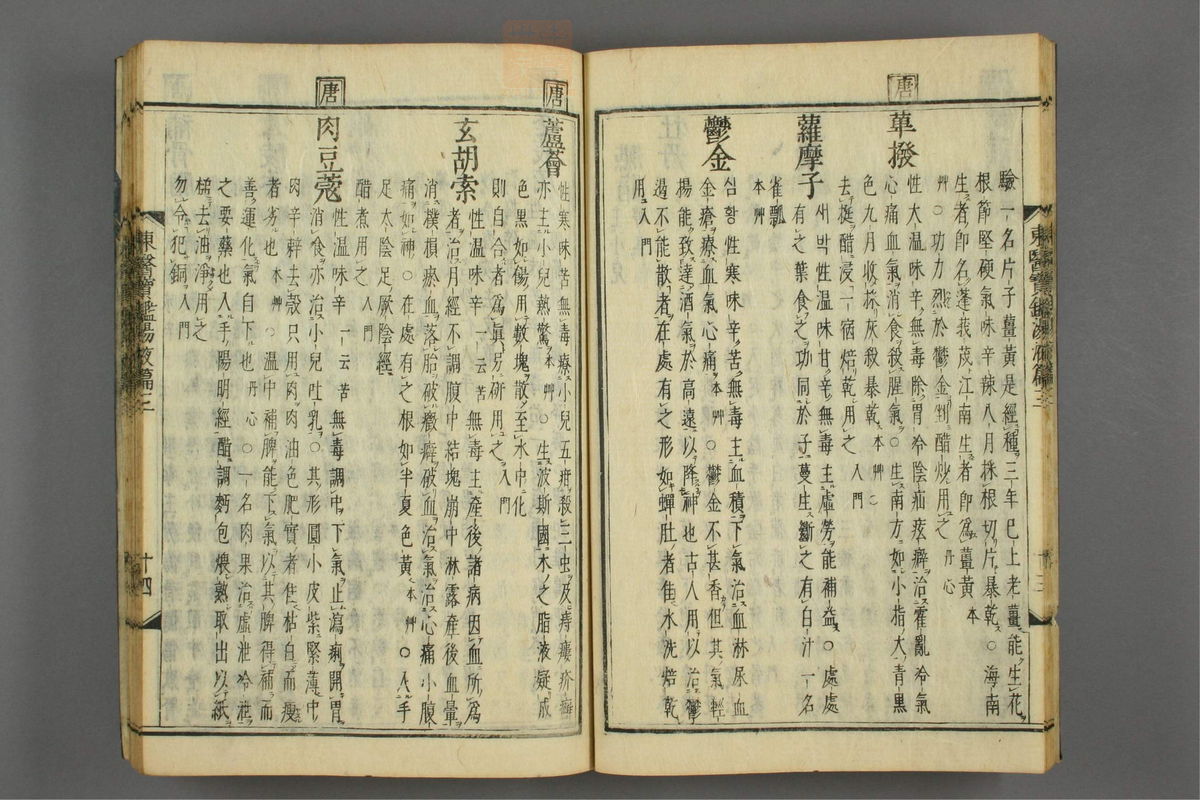 驗一名片子薑黃是經種三年已上老薑能生花
根節堅硬氣味辛辣八月採根切片暴乾○海南
生者卽名蓬莪茂江南生者卽爲薑黃本
艸○功力烈於鬱金剉醋炒用之丹心
唐
蓽撥
性大溫味辛無毒除胃冷陰疝痃癖治霍亂冷氣
心痛血氣消食殺腥氣○生南方如小指大靑黑
色九月收採灰殺暴乾本艸○
去挺醋浸一宿焙乾用之入門
蘿摩子
새박性溫味甘辛無毒主虛勞能補益○處處
有之葉食之功同於子蔓生斷之有白汁一名
雀瓢
本艸
鬱金
심황性寒味辛苦無毒主血積下氣治血淋尿血
金瘡療血氣心痛本艸○鬱金不甚香但其氣輕
揚能致達酒氣於高遠以降神也古人用以治鬱
遏不能散者在處有之形如蟬肚者佳水洗焙乾
用入門
東醫寶鑑湯液篇三
十三
唐
蘆薈
性寒味苦無毒療小兒五疳殺三虫及痔瘻疥癬
亦主小兒熱驚本艸○生波斯國木之脂液凝成
色黑如餳用數塊散至水中化
則自合者爲眞另硏用之入門
玄胡索
性溫味辛一云苦無毒主產後諸病因血所爲
者治月經不調腹中結塊崩中淋露產後血暈
消撲損瘀血落胎破癥癖破血治氣治心痛小腹
痛如神○在處有之根如半夏色黃本艸○入手
足太陰足厥陰經
醋煮用之入門
唐
肉豆蔻
性溫味辛一云苦無毒調中下氣止瀉痢開胃
消食亦治小兒吐乳○其形圓小皮紫緊薄中
肉辛辢去殼只用肉肉油色肥實者佳枯白而瘦
者劣也本艸○溫中補脾能下氣以其脾得補而
善運化氣自下也丹心○一名肉果治虛泄冷泄
之要藥也入手陽明經醋調麪包煨熟取出以紙
搥去油淨用之
勿令犯銅入門
東醫寶鑑湯液篇三
十四